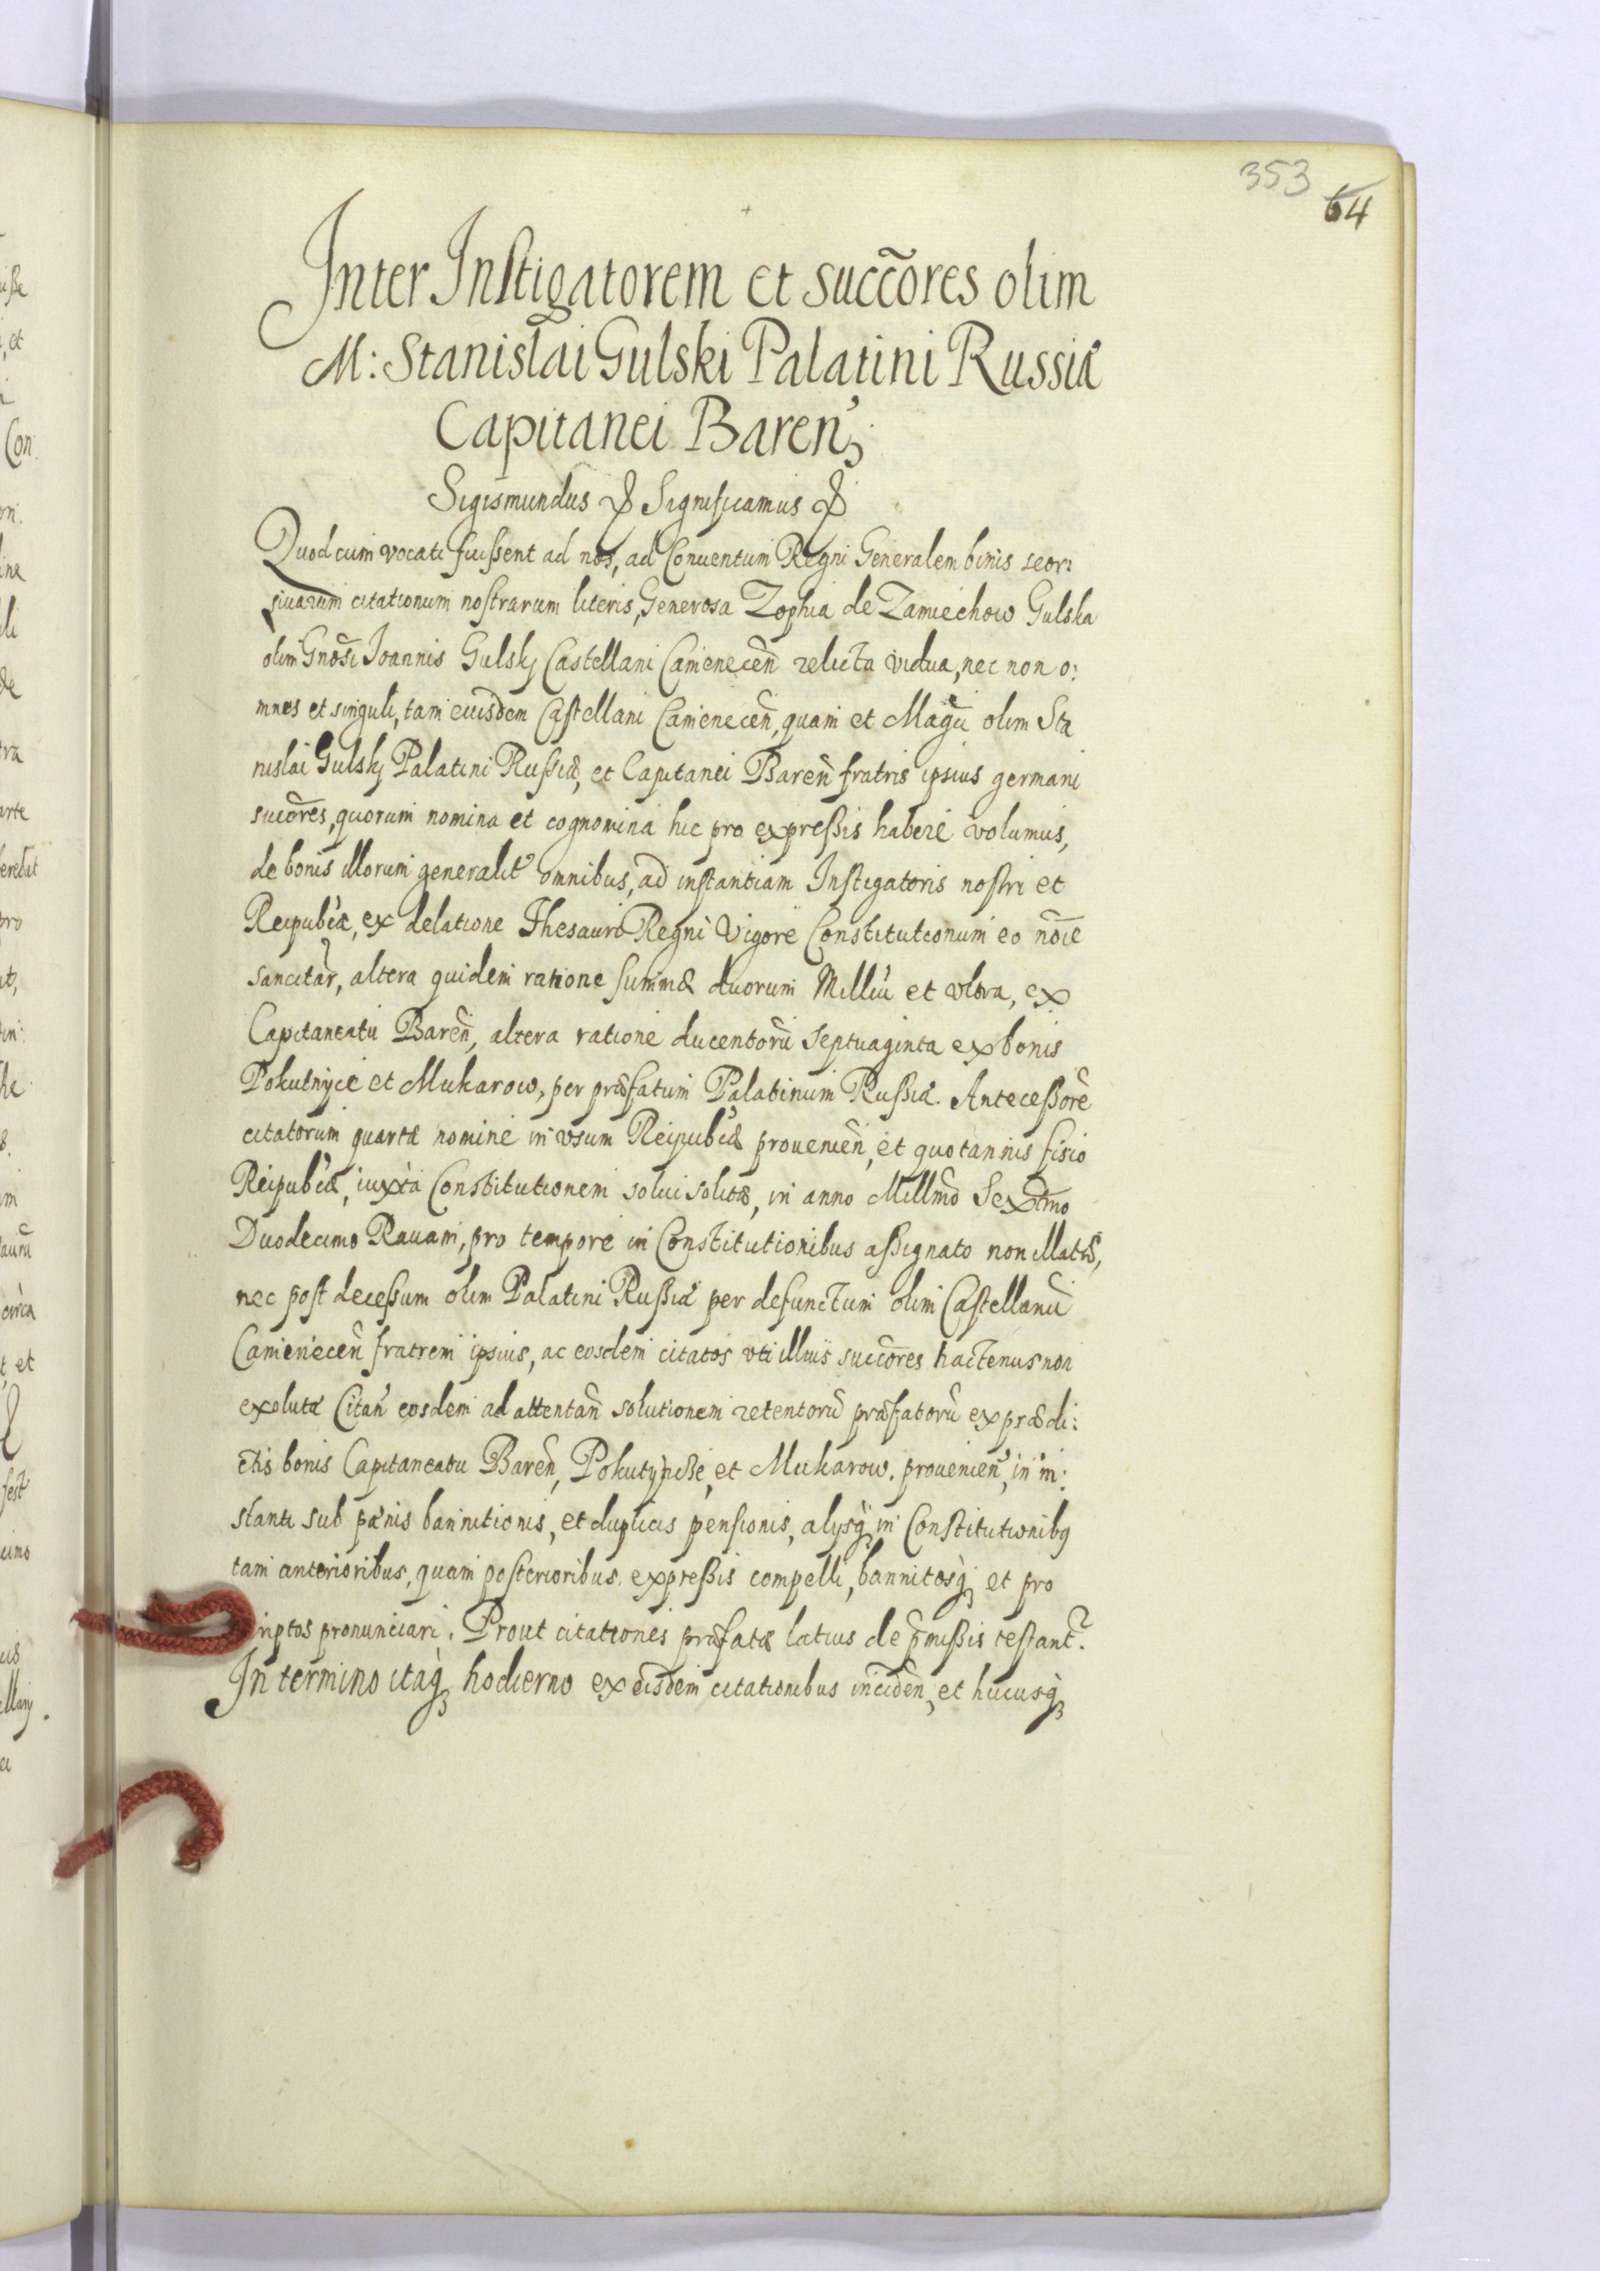 353
64
Inter Instigatorem et succõres olim
M: Stanislai Gulski Palatini Russiæ
Capitanei Baren̄,
Sigismundus & Significamus &
Quod cum vocati fuissent ad nos, ad Conventum Regni Generalem binis seor:
sivarum citationum nostrarum literis, Generosa Zophia de Zamiechow Gulska
olim Gnõsi Joannis Gulskj Castellani Camenecen̄ relicta vidua, nec non o:
mnes et singuli, tam eiusdem Castellani Camenecen̄, quam et Magci olim Sta
nislai Gulskj Palatini Russiæ, et Capitanei Baren̄ fratris ipsius germani
sucõres, quorum nomina et cognomina hic pro expressis habere volumus,
de bonis illorum generalit omnibus, ad instantiam Instigatoris nostri et
Reipubcæ, ex delatione Thesauri Regni Vigore Constitutionum eo nõie
sancitar, altera quidem ratione summæ duorum Milliũ et vltra, ex
Capitaneatu Baren̄, altera ratione ducentorũ septuaginta ex bonis
Pokutnyce et Mukarow, per præfatum Palatinum Russiæ. Antecessorẽ
citatorum quartæ nomine in vsum Reipubcæ provenien̄, et quotannis fisco
Reipubcæ, iuxta Constitutionem solui solitæ, in anno Millmo Sextmo
Duodecimo Ravam, pro tempore in Constitutionibus assignato non illatis,
nec post decessum olim Palatini Russiæ per defunctum olim Castellanũ
Camenecen̄ fratrem ipsius, ac eosdem citatos vti illius succõres hactenus non
exolutæ Citan̄ eosdem ad attentan̄ solutionem retentorũ præfatorũ ex prædi:
ctis bonis Capitaneatu Baren̄, et Mukarow. provenien̄, in in:
stanti sub pænis bannitionis, et duplicis pensionis, alysq in Constitutionibq
tam anterioribus, quam posterioribus expressis compelli, bannitosq et pro
riptos pronunciari. Prout citationes præfatæ latius de p̄missis testant.
In termino itaq hodierno ex eisdem citationibus inciden̄, et hucusq